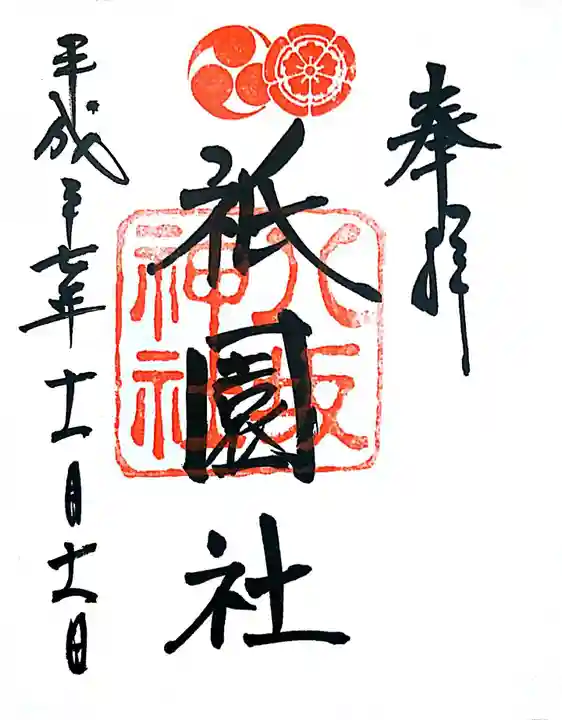 奉拝
祇園社
八坂
神社
平成二十七年
十一月十一日